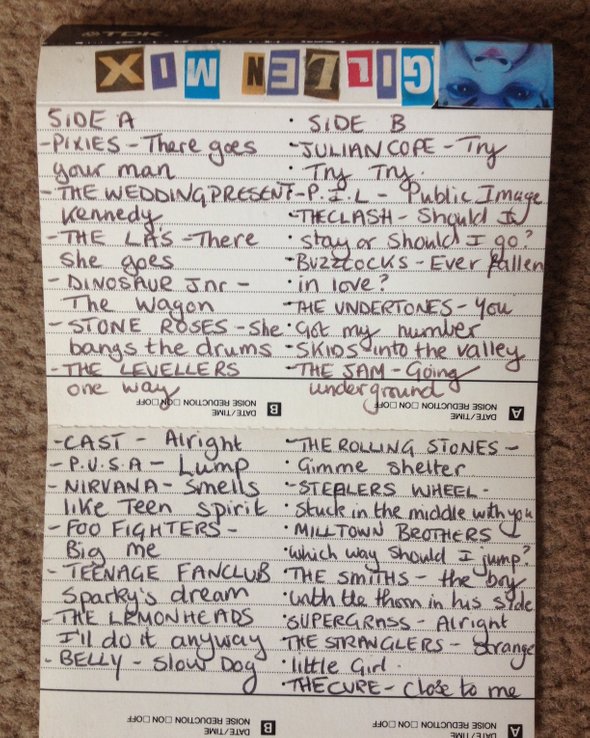 TDK
GILLEN MIX
SIDE A
- PIXIES - There goes
your man
- THE WEDDING PRESENT -
Kennedy
- THE LA'S - There
She goes
- DINOSAUR Jnr -
The Wagon
- STONE ROSES - She
bangs the drums
- THE LEVELLERS
one way
- CAST - Alright
- P.U.S.A - Lump
- NIRVANA - Smells
like Teen spirit
- FOO FIGHTERS -
Big me
- TEENAGE FANCLUB
Sparky's dream
- THE LEMONHEADS
I'll do it anyway
- BELLY - Slow Dog
SIDE B
JULIAN COPE - Try
Try Try.
P.I.L - Public Image
THE CLASH - Should I
stay or Should I go?
BUZZCOCKS - Ever fallen
in love?
THE UNDERTONES - You
Got my number
SKIDS into the valley
THE JAM - Going
underground
THE ROLLING STONES -
Gimme shelter
STEALERS WHEEL -
Stuck in the middle with you
MILLTOWN BROTHERS
which way should I jump?
THE SMITHS - the boy
with the thorn in his side
SUPERGRASS - Alright
THE STRANGLERS - Strange
little Girl.
THE CURE - Close to me
A DATE/TIME
NOISE REDUCTION □ON □OFF
B DATE/TIME
NOISE REDUCTION □ON □OFF
A DATE/TIME
NOISE REDUCTION □ON □OFF
B DATE/TIME
NOISE REDUCTION □ON □OFF